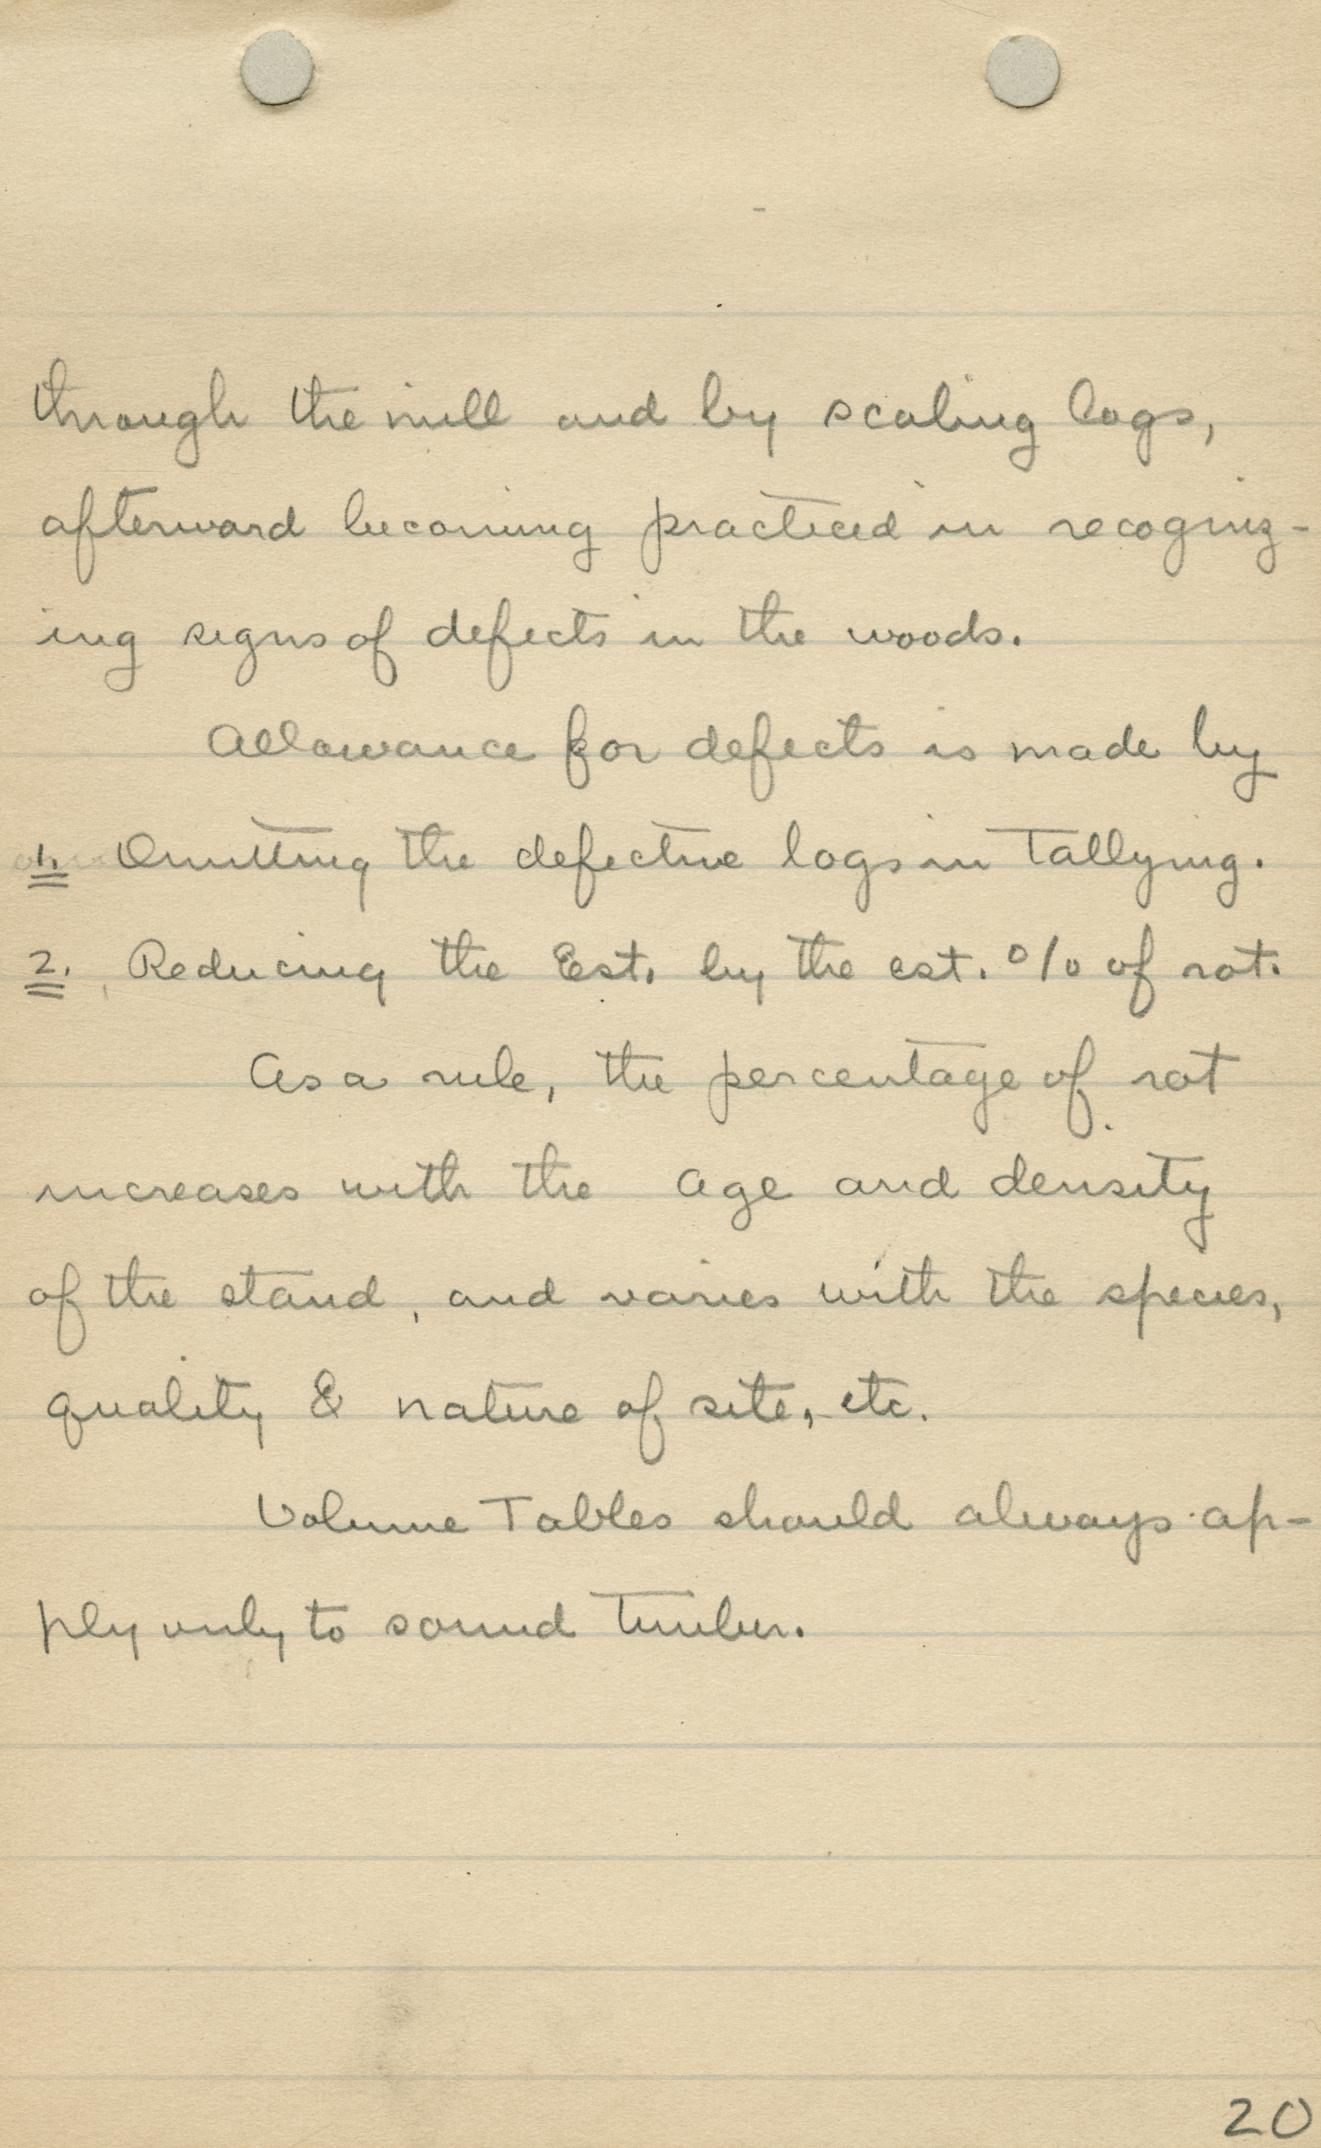 through the mill and by scaling logs,
afterward becoming practiced in recogniz-
ing signs of defects in the woods.
Allowance for defects is made by
1. Omitting the defective logs in Tallying.
2. Reducing the Est. by the est. % of rot.
As a rule, the percentage of rot
increases with the age and density
of the stand, and varies with the species,
quality & nature of site, etc.
Volume Tables should always ap-
ply only to sound timber.
20